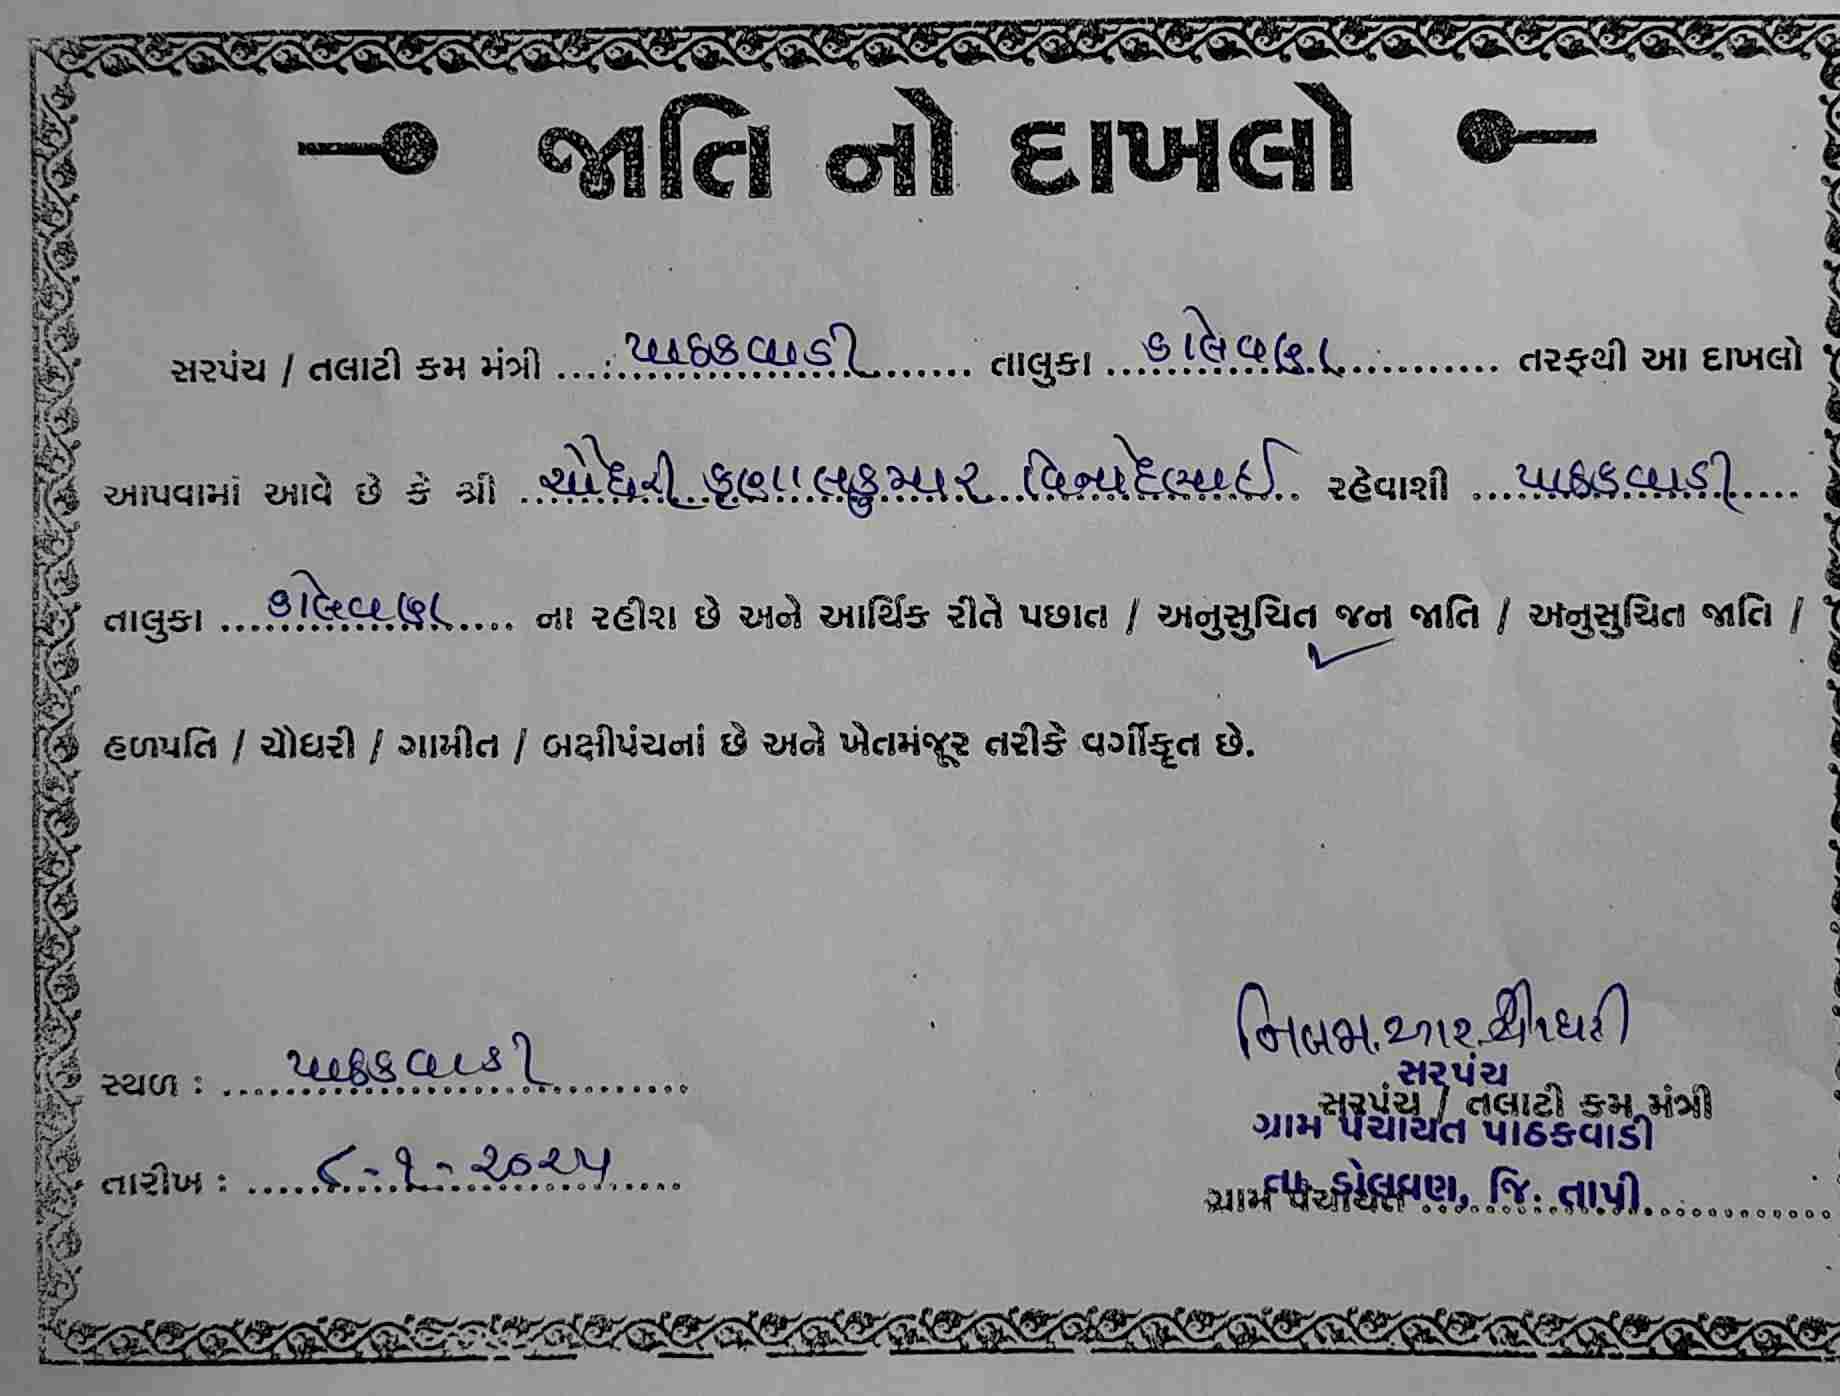 જાતિ નો દાખલો
સરપંચ / તલાટી કમ મંત્રી પાઠકવાડી તાલુકા ડોલવણ તરફથી આ દાખલો
આપવામાં આવે છે કે શ્રી ચૌધરી કૃણાલકુમાર વિનોદભાઈ રહેવાશી પાઠકવાડી
તાલુકા ડોલવણ ના રહીશ છે અને આર્થિક રીતે પછાત / અનુસુચિત જન જાતિ / અનુસુચિત જાતિ /
હળપતિ / ચૌધરી / ગામીત / બક્ષીપંચનાં છે અને ખેતમંજૂર તરીકે વર્ગીકૃત છે.
સ્થળ : પાઠકવાડી
તારીખ : ૮-૧-૨૦૨૫
આર. ચૌધરી
સરપંચ
સરપંચ / તલાટી કમ મંત્રી
ગ્રામ પંચાયત પાઠકવાડી
તા. ડોલવણ, જિ. તાપી
ગ્રામ પંચાયત